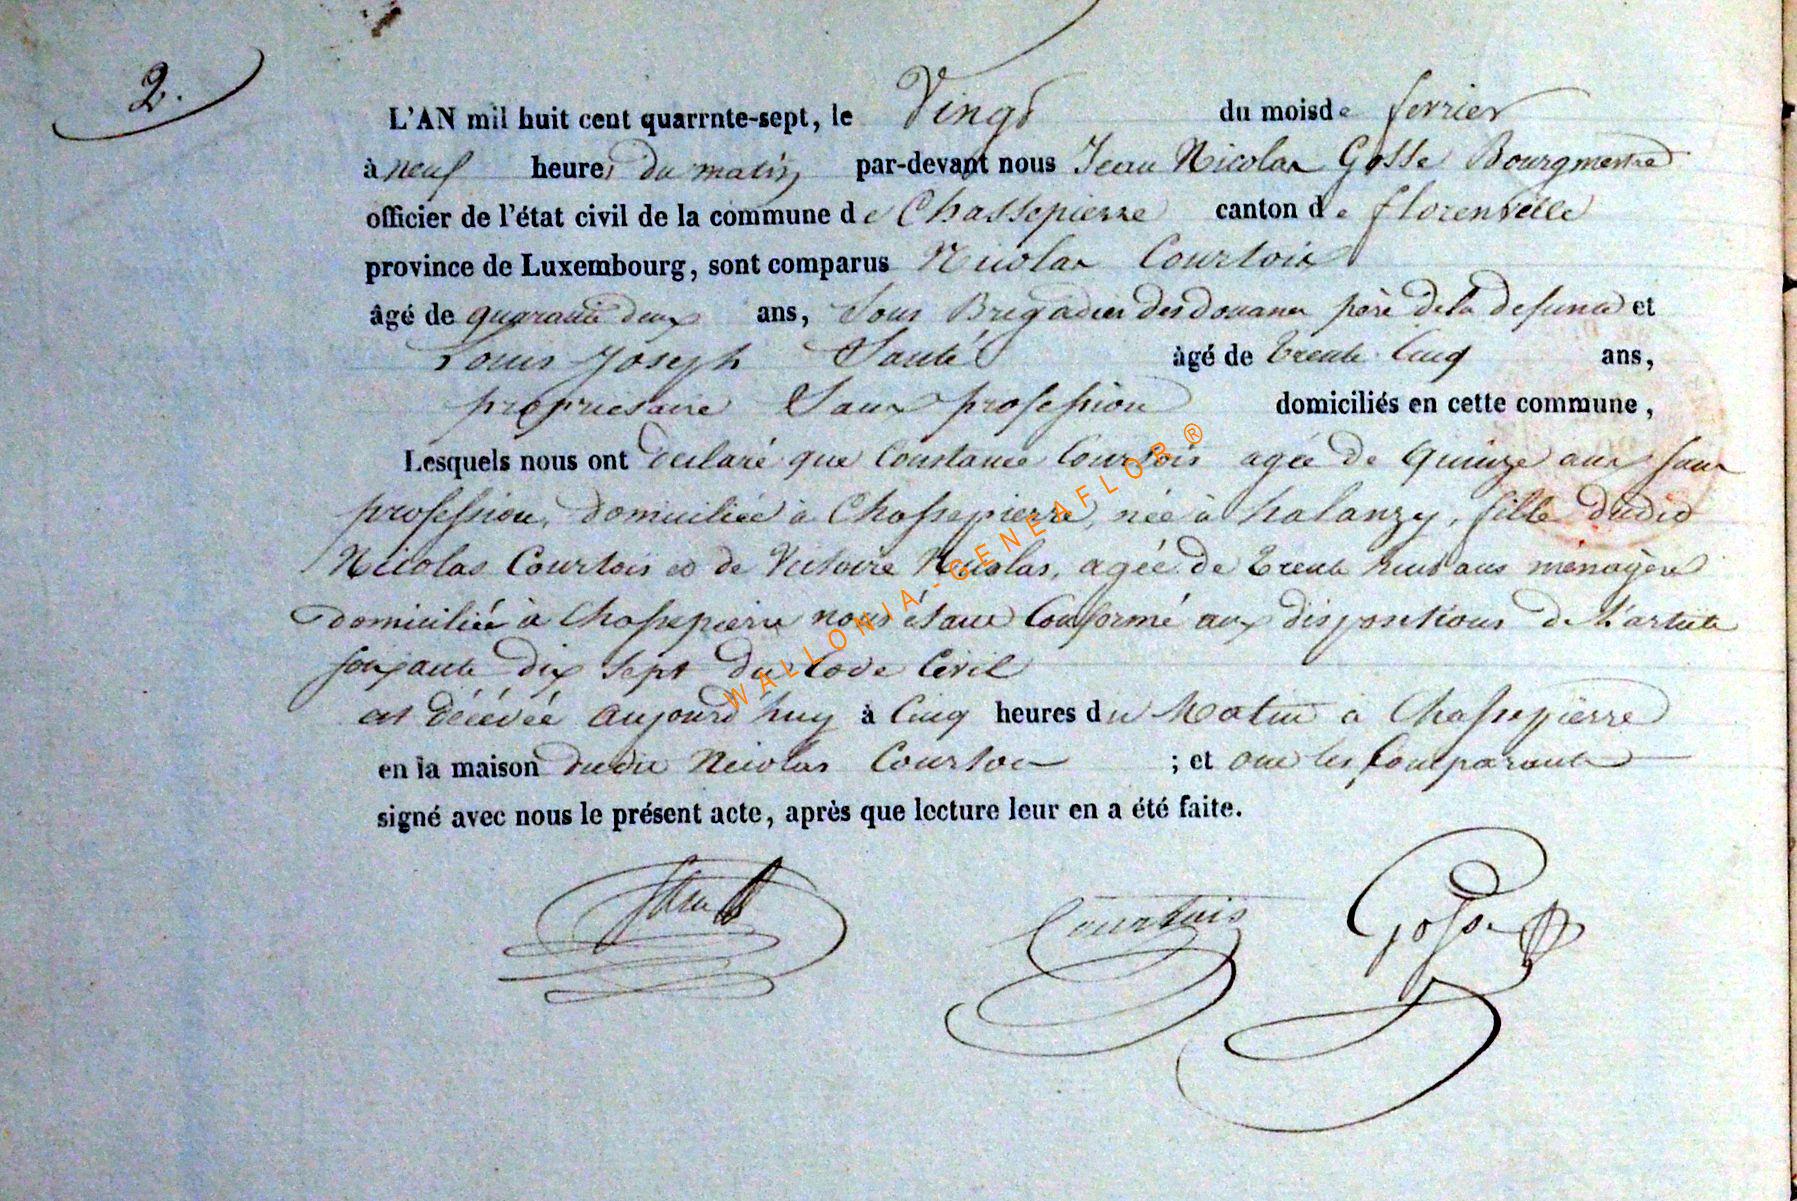 2.
L'AN mil huit cent quarrnte-sept, le Vingt du mois de fevrier
à neuf heures du matin par-devant nous Jean Nicolas Gosse Bourgmestre
officier de l'état civil de la commune de Chassepierre canton de florenville
province de Luxembourg, sont comparus Nicolas Courtois
âgé de quarante deux ans, Sous Brigadier des douanes père de la defunte et
Louis Joseph Santé âgé de trente Cinq ans,
propriétaire Sans profession domiciliés en cette commune,
Lesquels nous ont declaré que Constance Courtois agée de quinze ans sans
profession, domiciliée à Chassepierre, née à halanzy, fille dudit
Nicolas Courtois et de Victoire Nicolas, agée de trente huit ans ménagère
domiciliée à Chassepierre nous étant Conformé aux dispositions de l'article
soixante dix sept du Code Civil
est décédée aujourd'huy à Cinq heures du Matin à Chassepierre
en la maison dudit Nicolas Courtois ; et ont les Comparants
signé avec nous le présent acte, après que lecture leur en a été faite.
Courtois Gosse
WALLONIA-GENEAFLOR ®